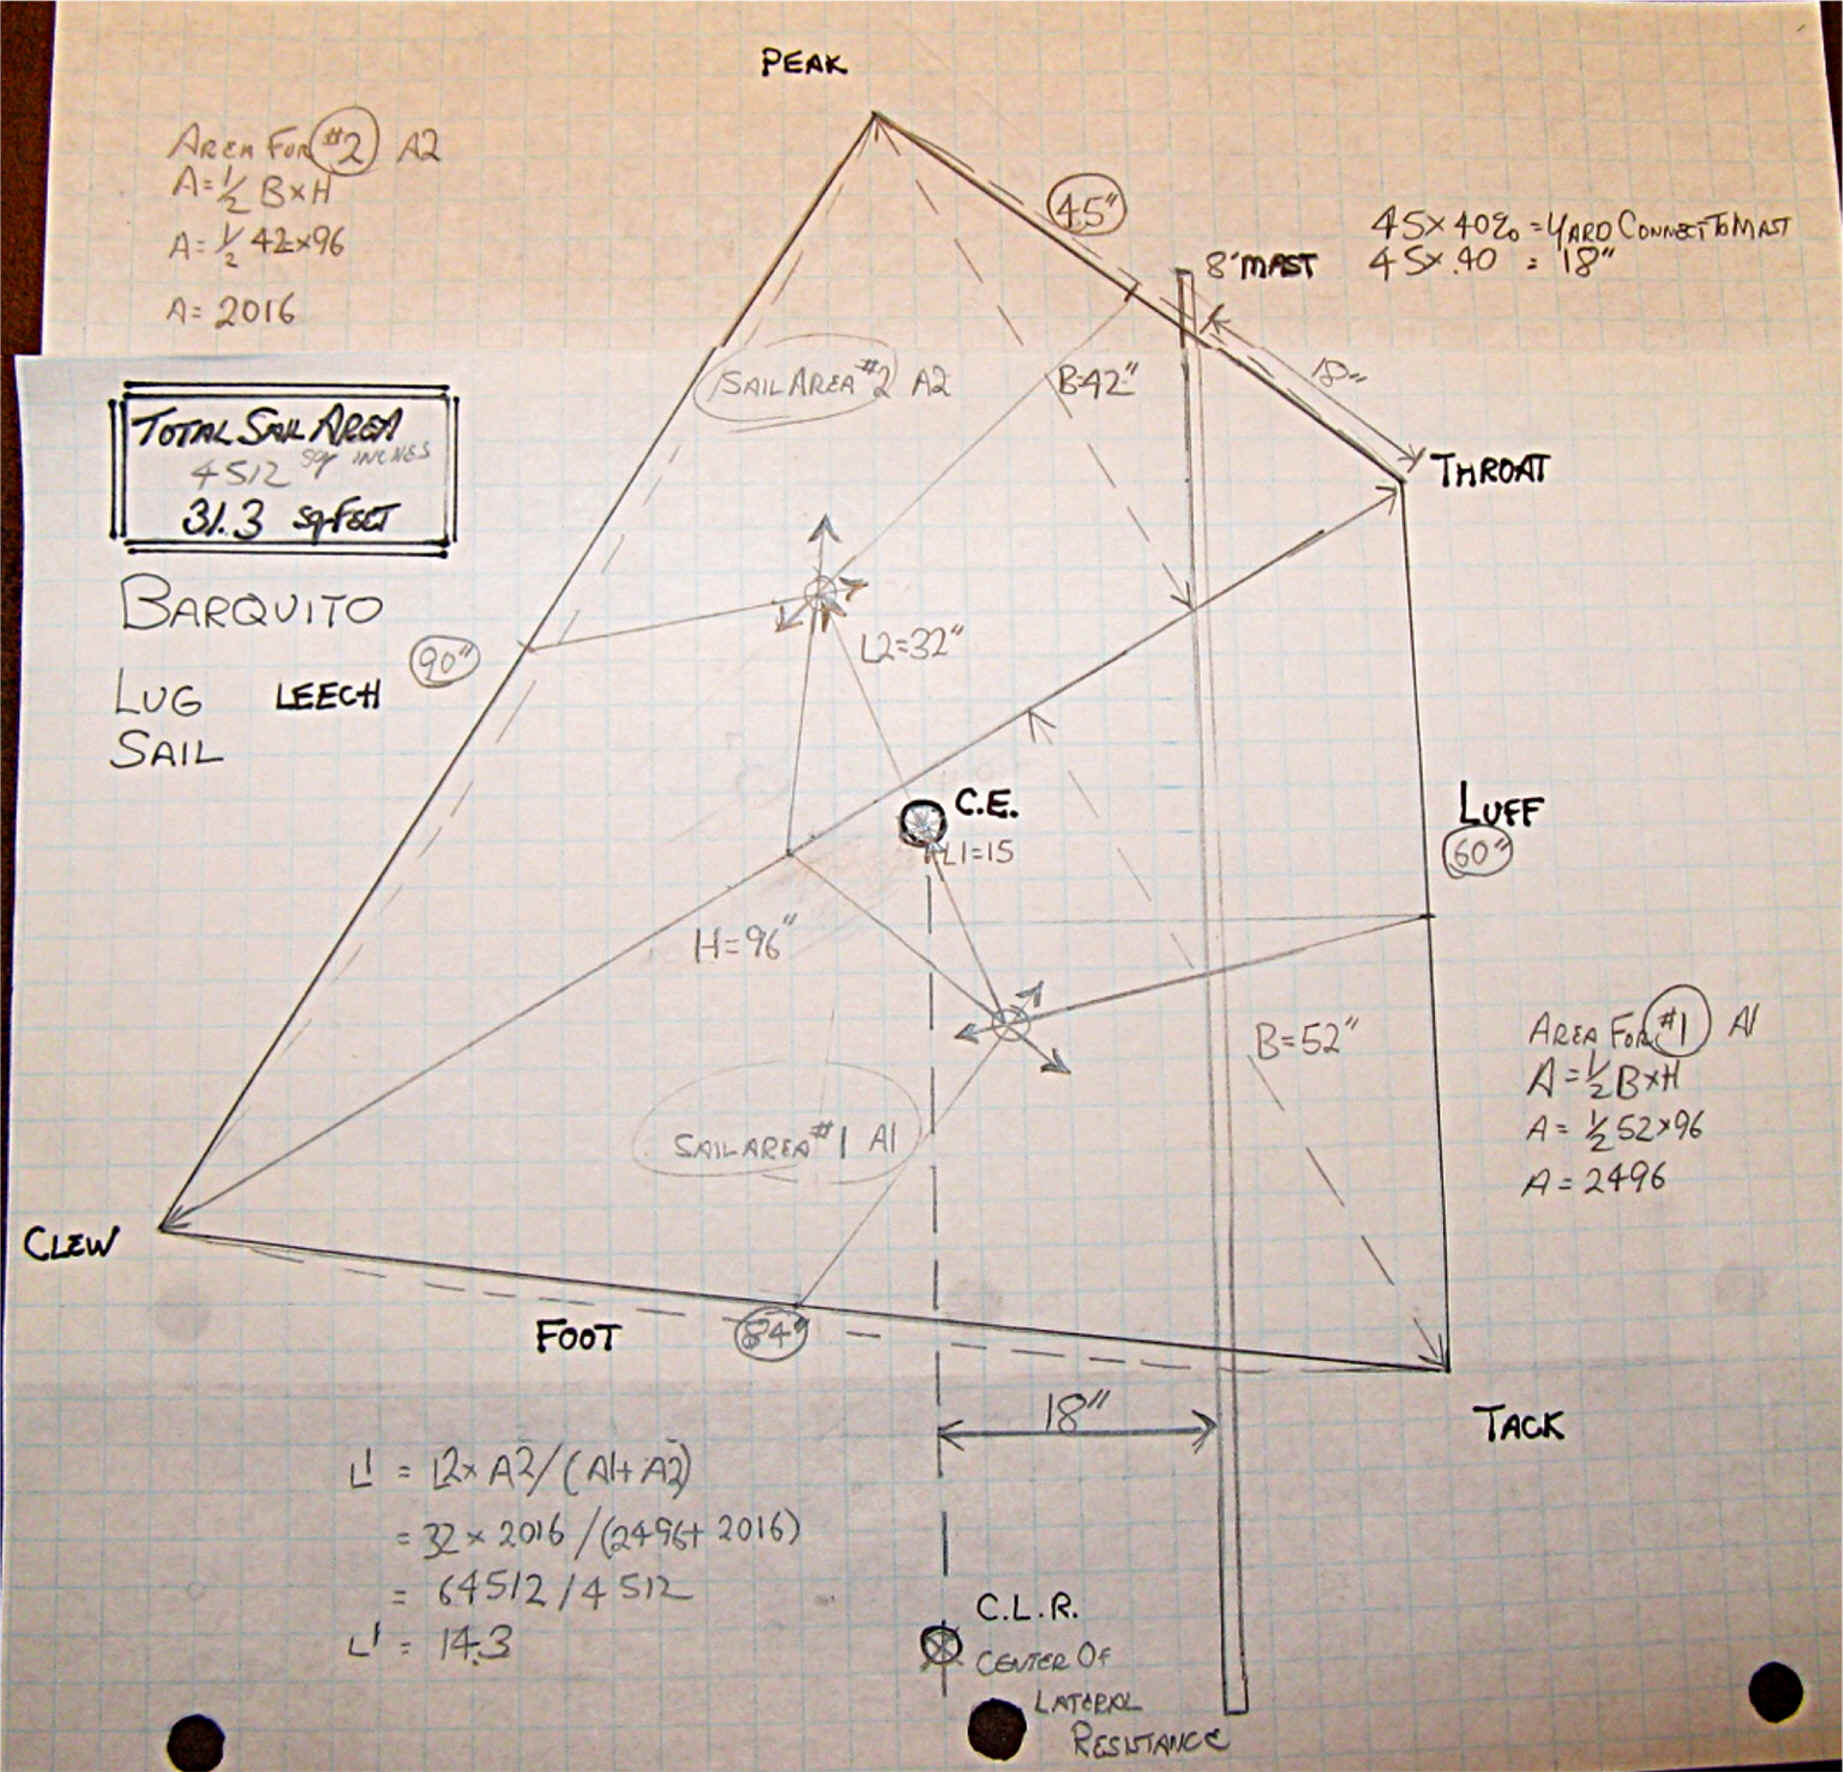 PEAK
AREA FOR #2 A2
A=1/2 B×H
A=1/2 42×96
A=2016
45"
45×40% = YARD CONNECT TO MAST
45×.40 = 18"
8' MAST
18"
SAIL AREA #2 A2
B=42"
TOTAL SAIL AREA
4512 sq INCHES
31.3 sq FEET
THROAT
BARQUITO
LUG
SAIL
LEECH
90"
L2=32"
C.E.
L1=15
LUFF
60"
H=96"
B=52"
AREA FOR #1 A1
A=1/2 B×H
A=1/2 52×96
A=2496
SAIL AREA #1 A1
CLEW
FOOT
84"
18"
TACK
L1 = L2× A2/(A1+A2)
= 32×2016/(2496+2016)
= 64512/4512
L1 = 14.3
C.L.R.
CENTER OF
LATERAL
RESISTANCE